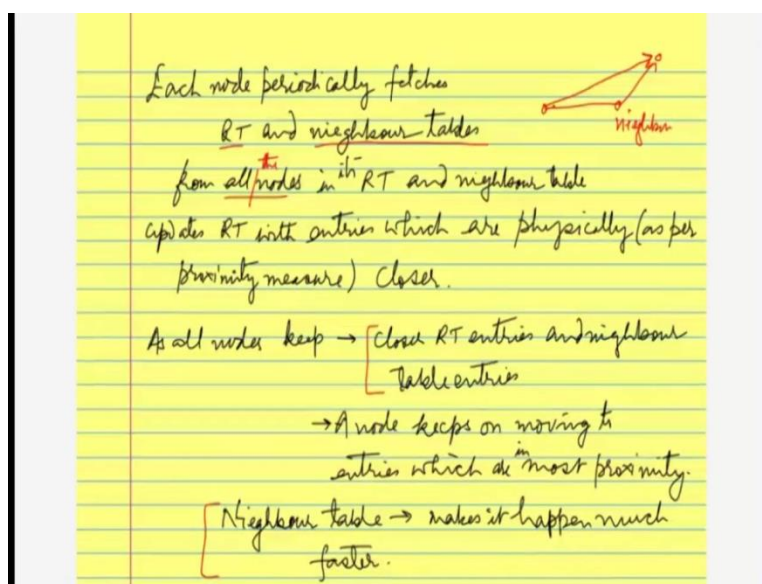 Each node periodically fetches
RT and nieghbour tables
nieghbour
from all the nodes in its RT and nieghbour table
updates RT with entries which are physically (as per
proximity measure) closer.
As all nodes keep → closer RT entries and nieghbour
Table entries
→ A node keeps on moving to
entries which are in most proximity.
Nieghbour table → makes it happen much
faster.